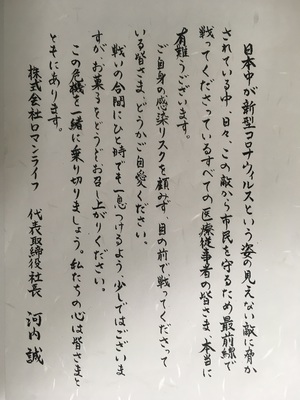 日本中が新型コロナウィルスという姿の見えない敵に脅か
されている中、日々、この敵から市民を守るため最前線で
戦ってくださっているすべての医療従事者の皆さま、本当に
有難うございます。
ご自身の感染リスクを顧みず、目の前で戦ってくださって
いる皆さま、どうかご自愛ください。
戦いの合間にひと時でも一息つけるよう、少しではございま
すが、お菓子をどうぞお召し上がりください。
この危機を一緒に乗り切りましょう。私たちの心は皆さまと
ともにあります。
株式会社ロマンライフ 代表取締役社長 河内 誠